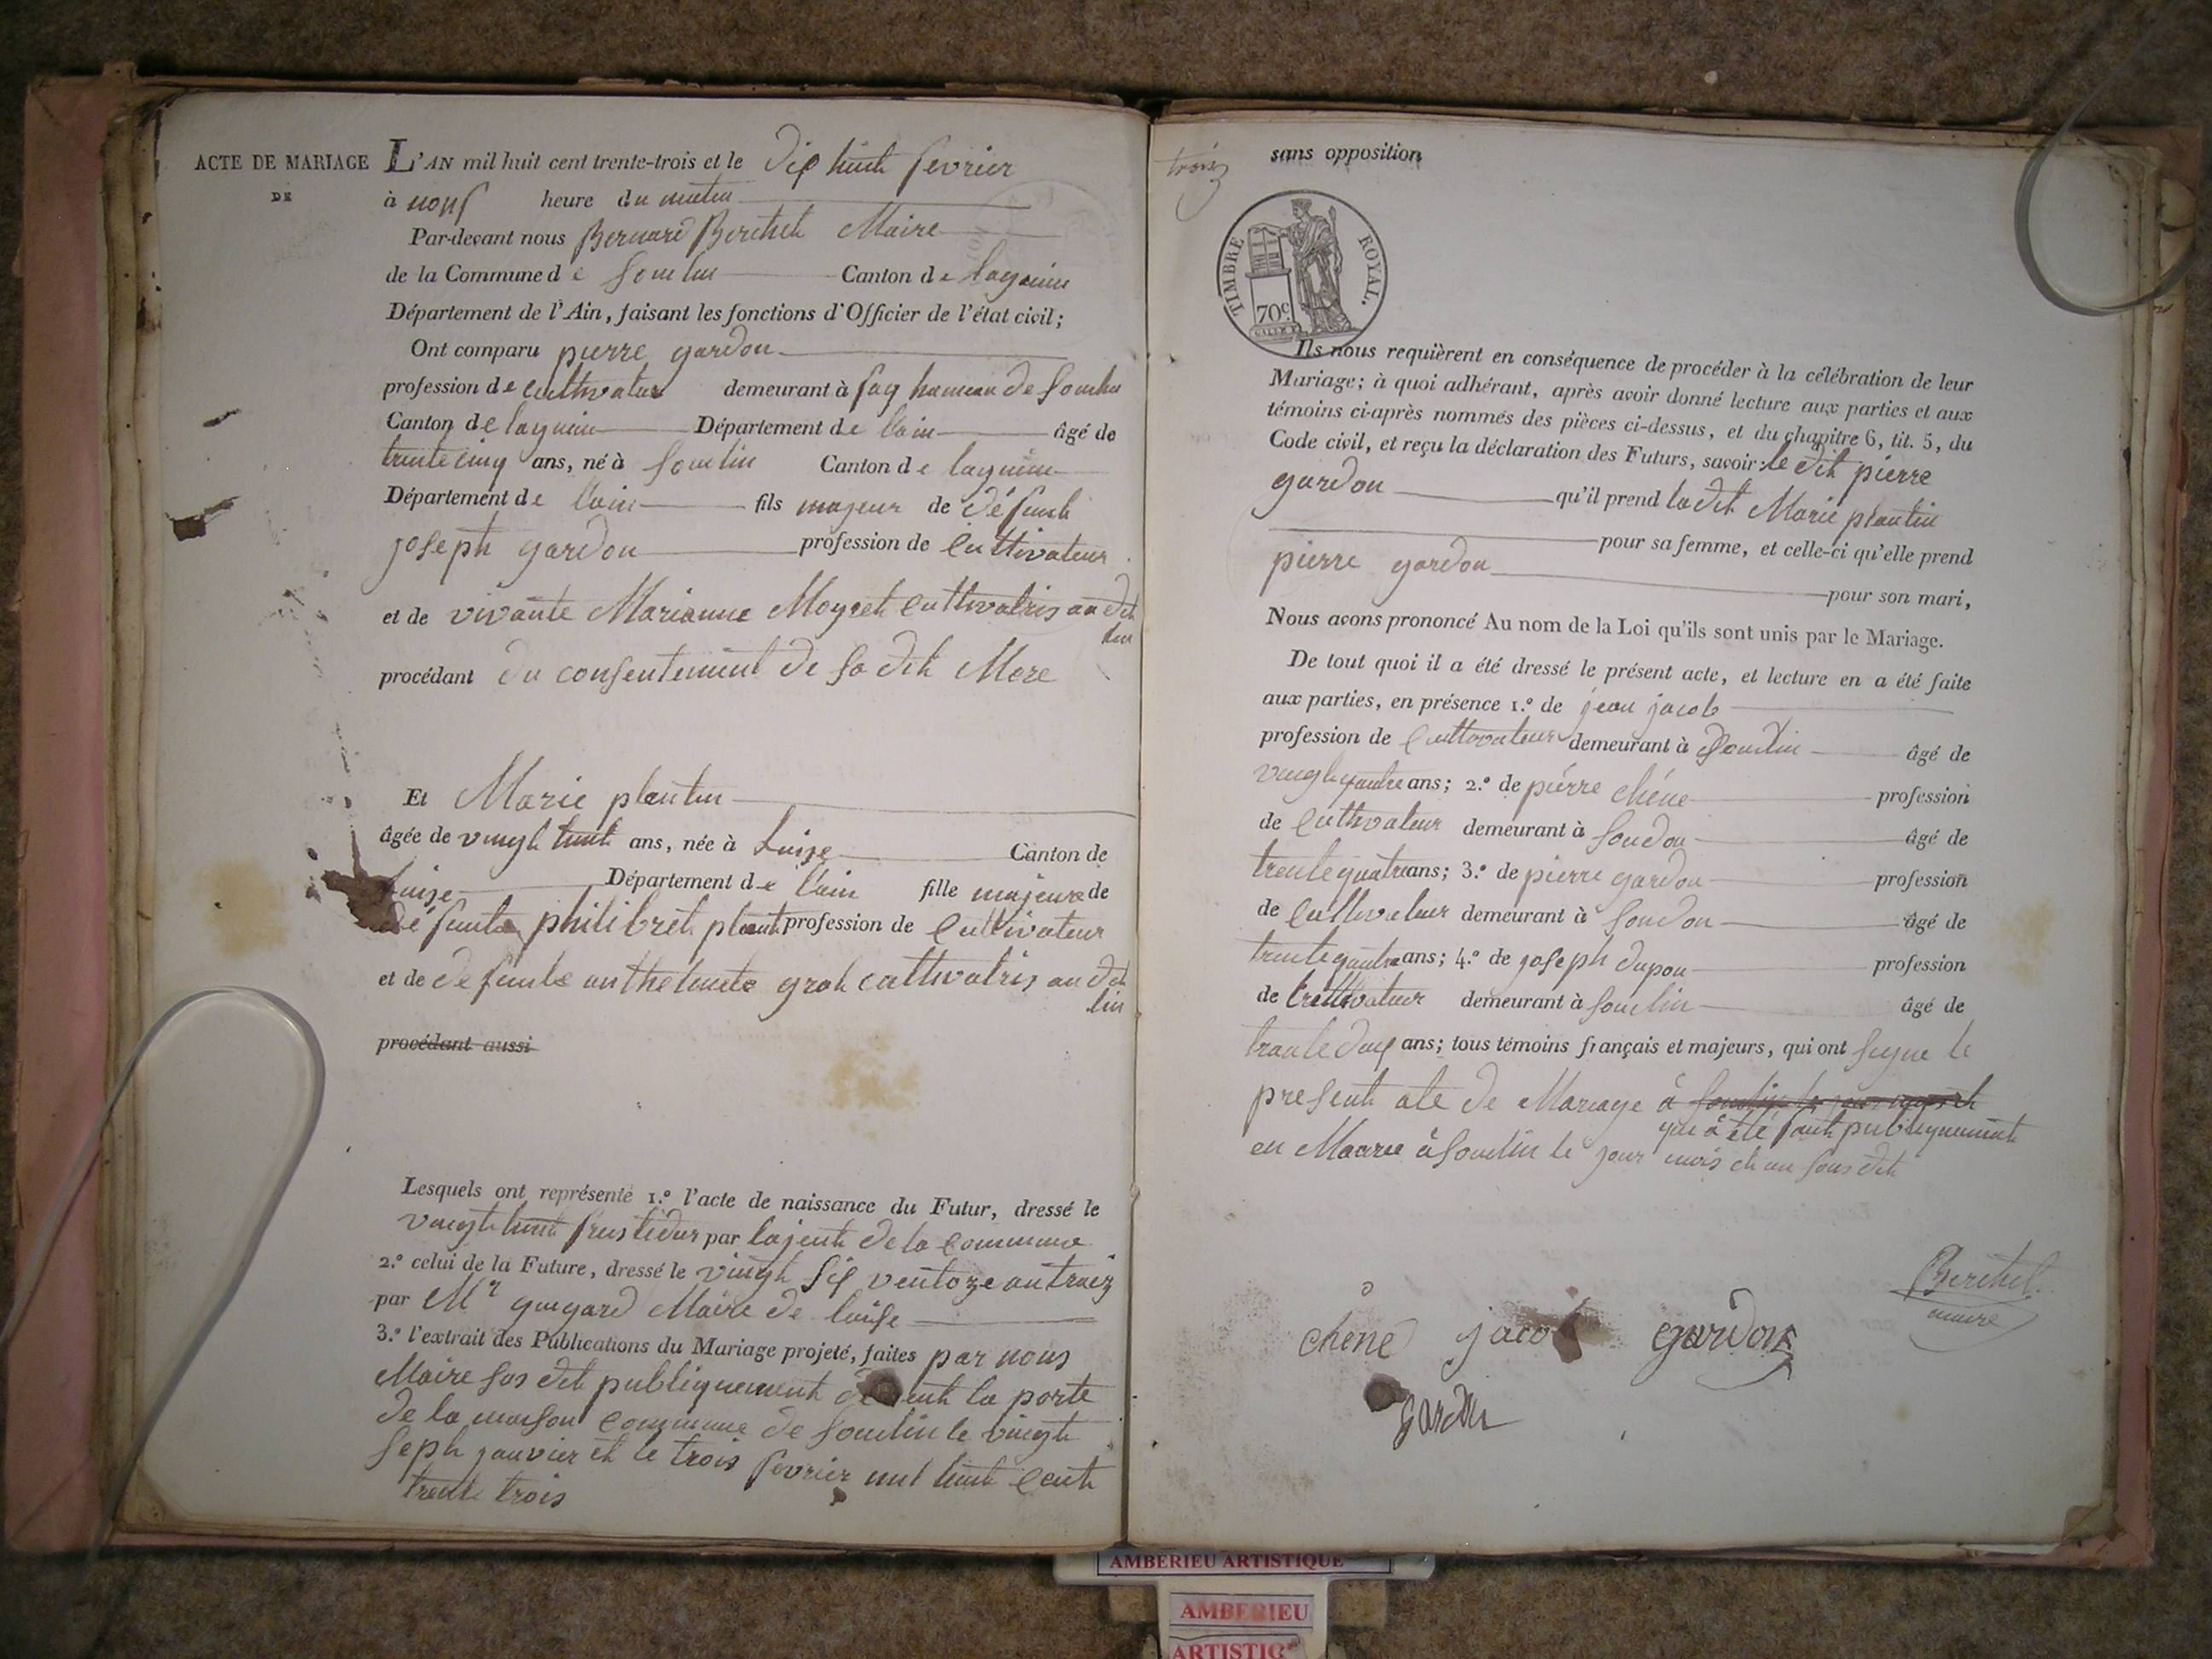 ACTE DE MARIAGE
DE
L'AN mil huit cent trente-trois et le dix huit fevrier
à nouf heure du matin
Par-devant nous Bernard Berthet Maire
de la Commune de Souclin Canton de lagnieu
Département de l'Ain, faisant les fonctions d'Officier de l'état civil;
Ont comparu pierre gardon
profession de cultivateur demeurant à fay hameau de Souclin
Canton de lagnieu Département de l'ain âgé de
trente cinq ans, né à Souclin Canton de lagnieu
Département de l'ain fils majeur de défunt
joseph gardon profession de Cultivateur
et de vivante Marianne Moyret cultivatris au dit
lieu
procédant du consentement de sa dit Mere
Et Marie plantin
âgée de vingt huit ans, née à Luise Canton de
Luise Département de l'ain fille majeure de
défunt philibret plant profession de Cultivateur
et de defunte anthelmete grat cultivatris au dit
lieu
procédant aussi
Lesquels ont représenté 1.º l'acte de naissance du Futur, dressé le
vingt huit frustidor par lajent de la Commune
2.º celui de la Future, dressé le vingt six ventoze an traiz
par Mr guigard Maire de luise
3.º l'extrait des Publications du Mariage projeté, faites par nous
Maire sus dit publiquement la porte
de la maison commune de Souclin le vingt
seph janvier et le trois fevrier mil huit cent
trente trois
troiz
sans opposition
TIMBRE ROYAL.
70c.
Ils nous requièrent en conséquence de procéder à la célébration de leur
Mariage; à quoi adhérant, après avoir donné lecture aux parties et aux
témoins ci-après nommés des pièces ci-dessus, et du chapitre 6, tit. 5, du
Code civil, et reçu la déclaration des Futurs, savoir: le dit pierre
gardon qu'il prend la dit Marie plantin
pour sa femme, et celle-ci qu'elle prend
pierre gardon
pour son mari,
Nous avons prononcé Au nom de la Loi qu'ils sont unis par le Mariage.
De tout quoi il a été dressé le présent acte, et lecture en a été faite
aux parties, en présence 1.º de jean jacob
profession de Cultivateur demeurant à Souclin âgé de
vingt quatre ans; 2.º de piérre chéne profession
de Cultivateur demeurant à Soudon âgé de
trente quatre ans; 3.º de pierre gardon profession
de Cultivateur demeurant à Soudon âgé de
trente quatre ans; 4.º de joseph dupon profession
de Cultivateur demeurant à Souclin âgé de
trante deux ans; tous témoins français et majeurs, qui ont signe le
present ate de Mariage à Souclin le jour
que à été fait publiquement
en Mairie à Souclin le jour mois et an sous dit
Berthet
maire
chene jacob gardon
gardon
AMBERIEU ARTISTIQUE
AMBERIEU
ARTISTIQ